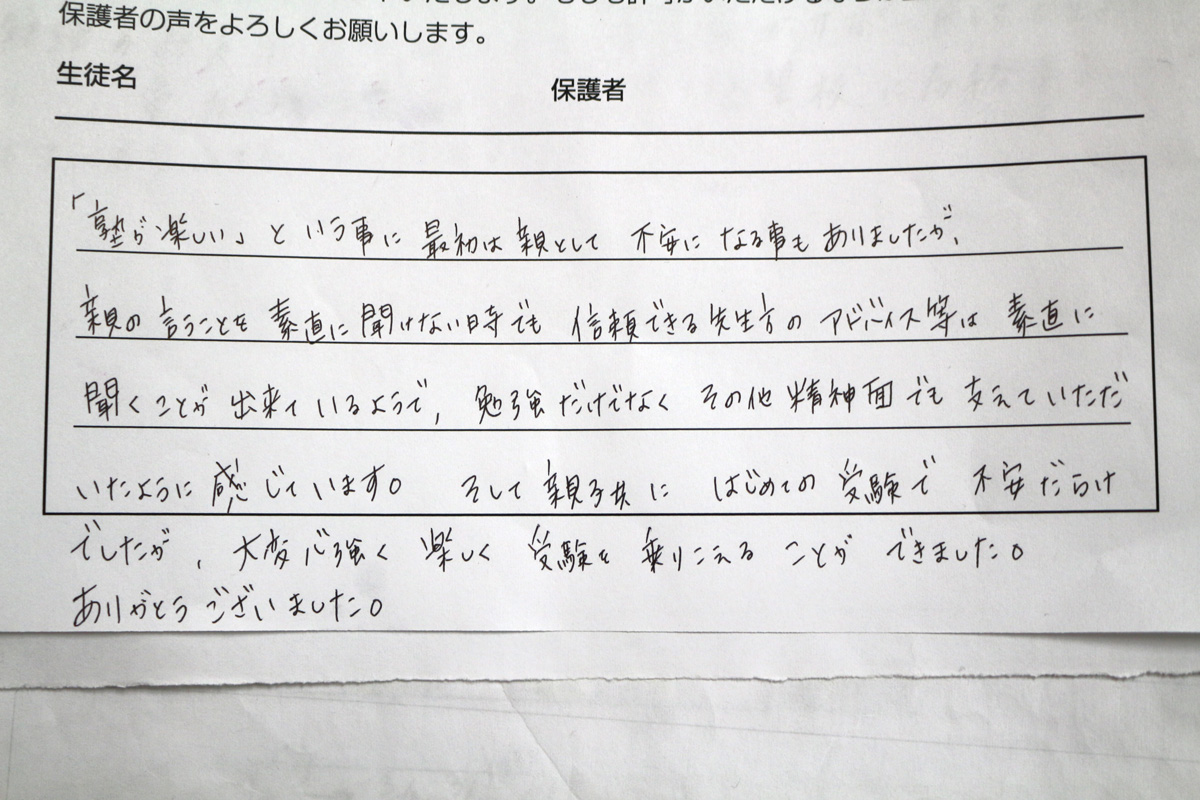 保護者の声をよろしくお願いします。
生徒名
保護者
「塾が楽しい」という事に最初は親として不安になる事もありましたが、
親の言うことを素直に聞けない時でも信頼できる先生方のアドバイス等は素直に
聞くことが出来ているようで、勉強だけでなくその他精神面でも支えていただ
いたように感じています。そして親子共にはじめての受験で不安だらけ
でしたが、大変心強く楽しく受験を乗りこえることができました。
ありがとうございました。